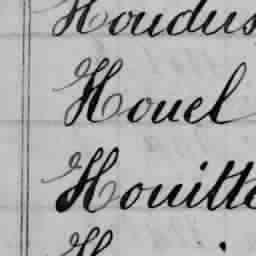 Houdus
Houel
Houitte